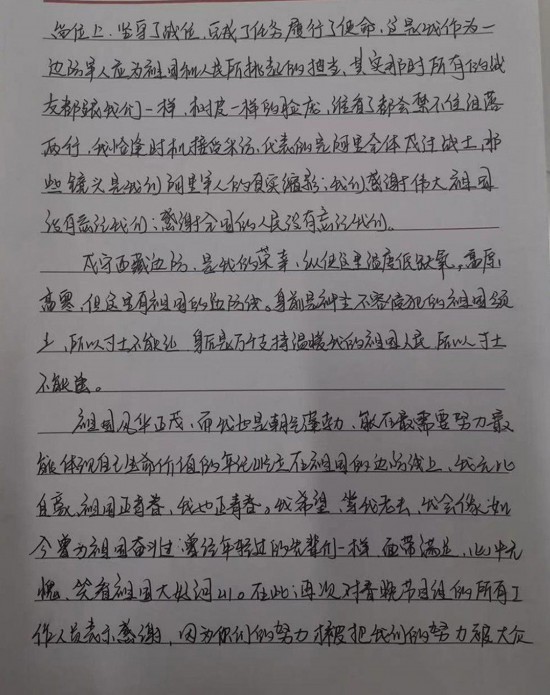 岗位上，坚守了战位，完成了任务履行了使命，这是我作为一
边防军人应为祖国和人民所挑起的担当，其实那时所有的战
友都跟我们一样，相差一样的脸庞，谁看了都会禁不住泪落
两行，我恰逢时机接受采访，代表的是阿里全体戍边战士，那
些镜头是我们阿里军人的真实缩影；我们感谢伟大祖国
没有忘记我们；感谢全国的人民没有忘记我们。
戍守西藏边防，是我的荣幸，纵使这里温度低缺氧，高原
高寒，但这里有祖国的边防线。身前是神圣不容侵犯的祖国领
土，所以寸土不能让，身后是万千支持温暖我的祖国人民，所以寸土
不能丢。
祖国风华正茂，而我也是朝气蓬勃，能在最需要努力最
能体现自己生命价值的年纪屹立在祖国的边防线上，我无比
自豪，祖国正青春，我也正青春。我希望，当我老去，我会像如
今曾为祖国奋斗过曾经年轻过的先辈们一样 面带满足，心中无
愧，笑看祖国大好河山。在此，再次对春晚节目组的所有工
作人员表示感谢，因为你们的努力 才能把我们的努力被大众